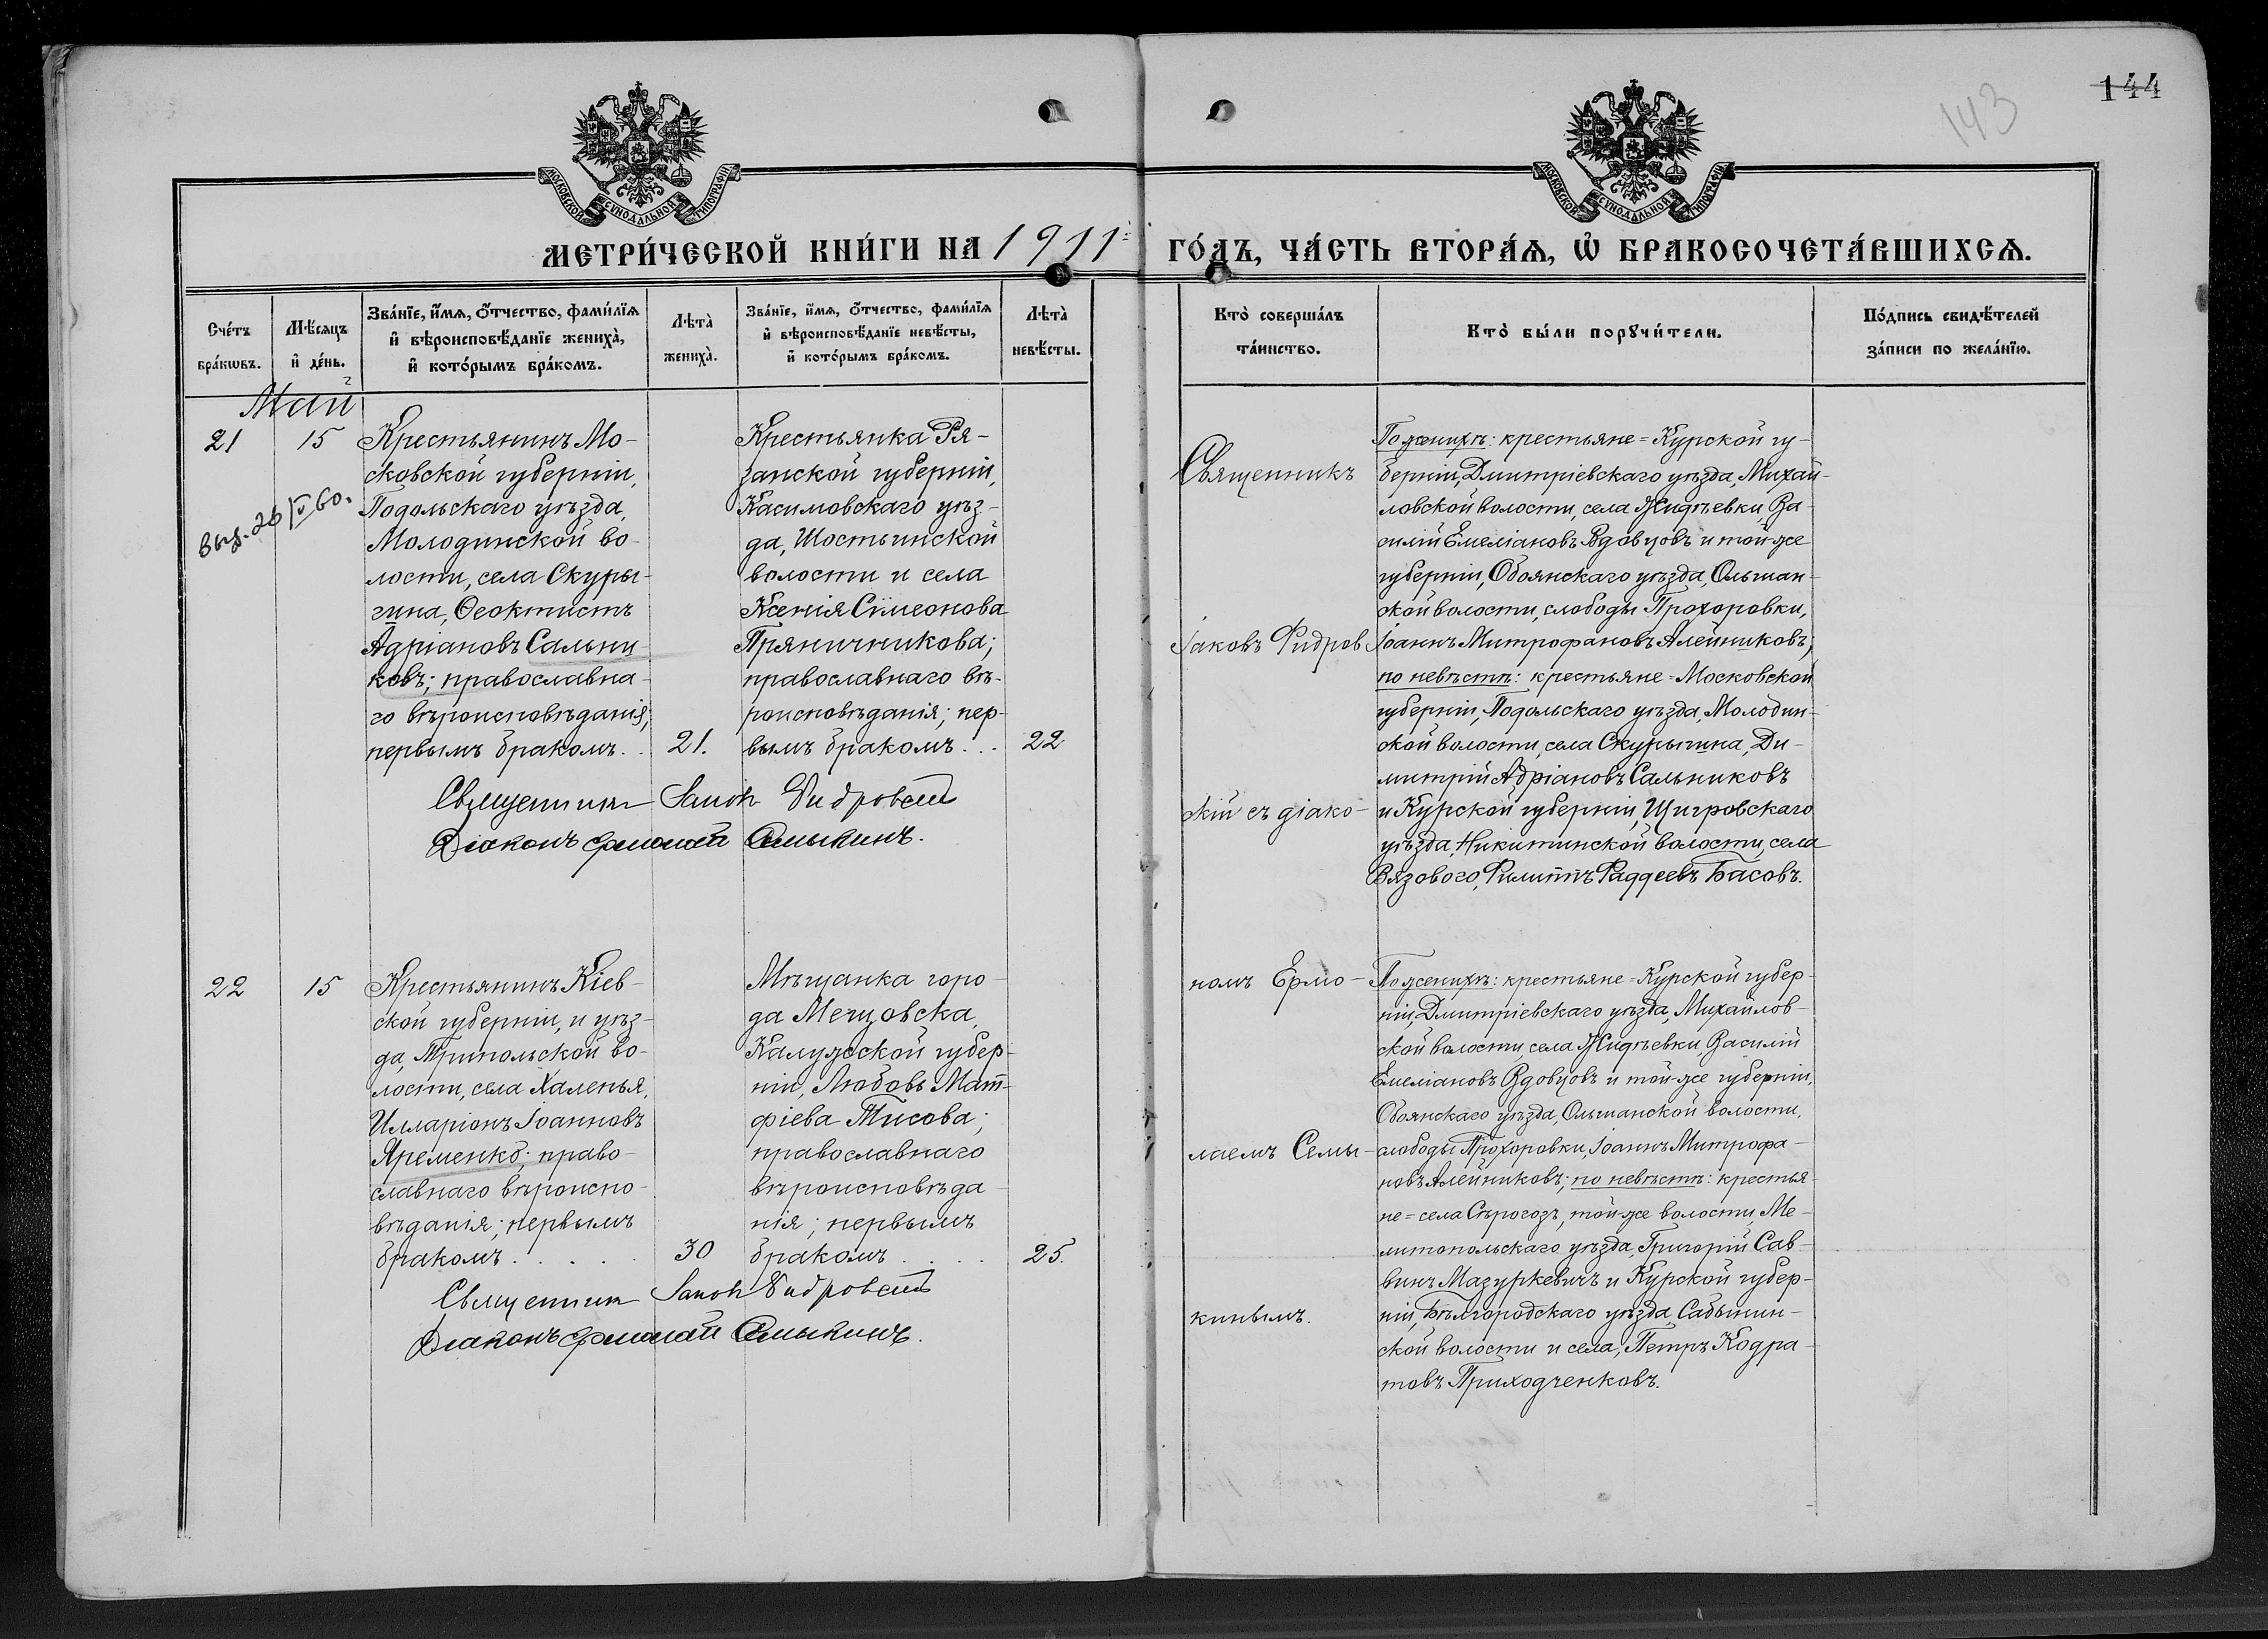 144
143
МОСКОВСКОЙ СѴНОДАЛЬНОЙ ТИПОГРАФІИ
МОСКОВСКОЙ СѴНОДАЛЬНОЙ ТИПОГРАФІИ
МЕТРИ́ЧЕСКОЙ КНИ́ГИ НА 1911 ГО́ДЪ, ЧА́СТЬ ВТОРА́Ѧ, Ѡ҆ БРАКОСОЧЕТА́ВШИХСѦ.
Сче́тъ
бра́кѡвъ.
Мѣ́сѧцъ
и҆ де́нь.
Зва́нїе, и҆́мѧ, ѻ҆́тчество, фами́лїѧ
и҆ вѣроисповѣ́данїе жениха̀,
и҆ кото́рымъ бра́комъ.
Лѣта̀
жениха̀.
Зва́нїе, и҆́мѧ, ѻ҆́тчество, фами́лїѧ
и҆ вѣроисповѣ́данїе невѣ́сты,
и҆ кото́рымъ бра́комъ.
Лѣта̀
невѣ́сты.
Кто̀ соверша́лъ
та́инство.
Кто̀ бы́ли порꙋчи́тели.
По́дпись свидѣ́телей
за́писи по жела́нїю.
Май
21
15
Выд. 26/V 60.
Крестьянинъ Мо-
сковской губерніи,
Подольскаго уѣзда,
Молодинской во-
лости, села Скуры-
гина, Ѳеоктистъ
Адріановъ Сальни-
ковъ; православна-
го вѣроисповѣданія;
первымъ бракомъ. .
21.
Крестьянка Ря-
занской губерніи,
Касимовскаго уѣз-
да, Шостьинской
волости и села
Ксенія Сімеонова
Пряничникова;
православнаго вѣ-
роисповѣданія; пер-
вымъ бракомъ. . .
22
Священникъ Іаковъ Фидровскій
Діаконъ Ермолай Семыкинъ.
Священникъ
Іаковъ Фидров
скій съ діако-
номъ Ермо-
лаемъ Семы-
кинымъ.
По женихѣ: крестьяне = Курской гу-
берніи, Дмитріевскаго уѣзда, Михай-
ловской волости, села Жидѣевки, Ва-
силій Емеліановъ Вдовцовъ и той-же
губерніи, Обоянскаго уѣзда, Ольшан-
ской волости, слободы Прохоровки,
Іоаннъ Митрофановъ Алейниковъ;
по невѣстѣ: крестьяне = Московской
губерніи, Подольскаго уѣзда, Молодин-
ской волости, села Скурыгина, Ди-
митрій Адріановъ Сальниковъ
и Курской губерніи, Щигровскаго
уѣзда, Никитинской волости, села
Вязового, Филиппъ Фаддеевъ Басовъ.
22
15
Крестьянинъ Кіев-
ской губерніи, и уѣз-
да, Трипольской во-
лости, села Халепья,
Илларіонъ Іоанновъ
Яременко; право-
славнаго вѣроиспо-
вѣданія; первымъ
бракомъ. . . . .
30
Мѣщанка горо-
да Мещовска,
Калужской губер-
ніи, Любовь Мат-
фіева Тисова;
православнаго
вѣроисповѣда-
нія; первымъ
бракомъ . . . .
25.
Священникъ Іаковъ Фидровскій
Діаконъ Ермолай Семыкинъ.
По женихѣ: крестьяне = Курской губер-
ніи, Дмитріевскаго уѣзда, Михайлов-
ской волости, села Жидѣевки, Василій
Емеліановъ Вдовцовъ и той-же губерніи,
Обоянскаго уѣзда, Ольшанской волости,
слободы Прохоровки, Іоаннъ Митрофа-
новъ Алейниковъ; по невѣстѣ: крестья-
не = села Сѣрогозъ, той-же волости, Ме-
литопольскаго уѣзда, Григорій Сав-
винъ Мазуркевичъ и Курской губер-
ніи, Бѣлгородскаго уѣзда, Сабынин-
ской волости и села, Петръ Кодра-
товъ Приходченковъ.